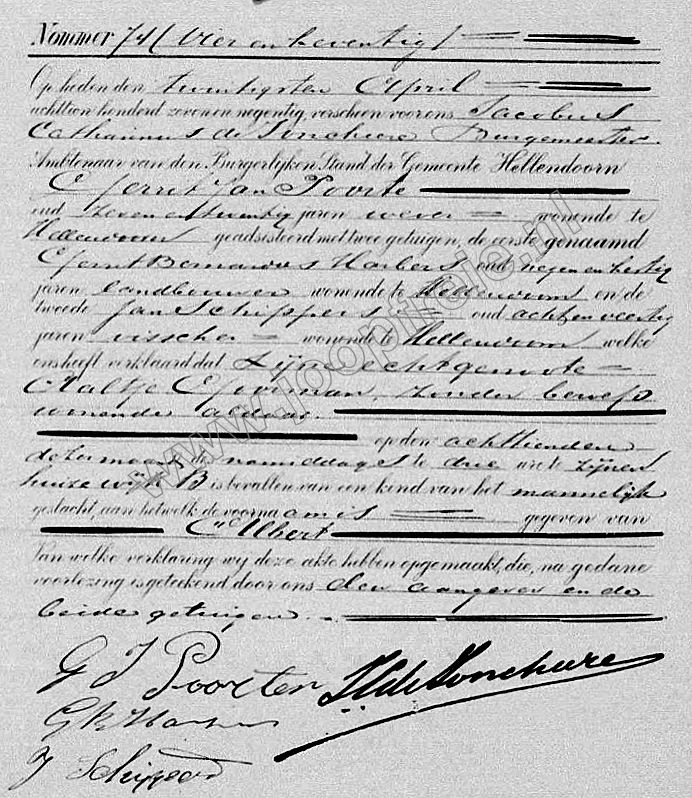 Nommer 74 (Vier en zeventig)
Op heden den twintigsten April
achttien honderd zeven en negentig, verscheen voor ons Jacobus
Catharinus de Jonckheere Burgemeester
Ambtenaar van den Burgerlijken Stand der Gemeente Hellendoorn
Gerrit Jan Poorte
oud zeven en twintig jaren wever wonende te
Hellendoorn geadsisteerd met twee getuigen, de eerste genaamd
Gerrit Bernardus Harbers oud negen en dertig
jaren landbouwer wonende te Hellendoorn en de
tweede Jan Schippers oud acht en veertig
jaren visscher wonende te Hellendoorn welke
ons heeft verklaard dat zijne echtgenoote
Aaltje zonder beroep
wonende aldaar
op den achttienden
dezer maand des namiddages te drie ure te zijnen
huize wijk B is bevallen van een kind van het mannelijk
geslacht, aan hetwelk de voornaam is gegeven van
Albert
Van welke verklaring wij deze akte hebben opgemaakt, die, na gedane
voorlezing is geteekend door ons den aangever en de
beide getuigen.
G J Poorten JC de Jonckheere
G B Harbers
J Schippers
www.looptrole.nl